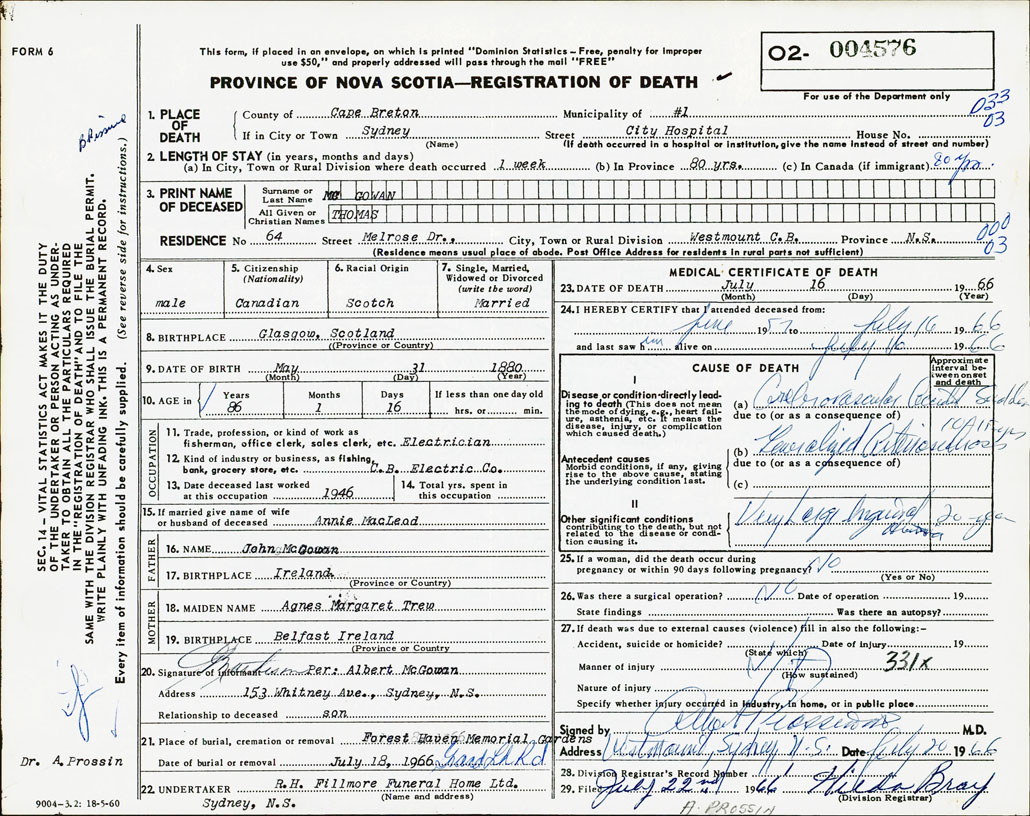 FORM 6
This form, if placed in an envelope, on which is printed "Dominion Statistics – Free, penalty for improper
use $50," and properly addressed will pass through the mail "FREE"
PROVINCE OF NOVA SCOTIA—REGISTRATION OF DEATH
02- 004576
For use of the Department only
033
03
1. PLACE OF DEATH
County of Cape Breton Municipality of #1
If in City or Town Sydney Street City Hospital House No.
(Name) (If death occurred in a hospital or institution, give the name instead of street and number)
2. LENGTH OF STAY (in years, months and days)
(a) In City, Town or Rural Division where death occurred 1 week (b) In Province 80 yrs. (c) In Canada (if immigrant) 80 yrs.
3. PRINT NAME OF DECEASED
Surname or Last Name MC GOWAN
All Given or Christian Names THOMAS
000
03
RESIDENCE No 64 Street Melrose Dr., City, Town or Rural Division Westmount C.B. Province N.S.
(Residence means usual place of abode. Post Office Address for residents in rural parts not sufficient)
4. Sex
male
5. Citizenship
(Nationality)
Canadian
6. Racial Origin
Scotch
7. Single, Married,
Widowed or Divorced
(write the word)
Married
8. BIRTHPLACE Glasgow, Scotland
((Province or Country)
9. DATE OF BIRTH May 31 1880
(Month) (Day) (Year)
10. AGE in
Years
86
Months
1
Days
16
If less than one day old
hrs. or min.
OCCUPATION
11. Trade, profession, or kind of work as
fisherman, office clerk, sales clerk, etc. Electrician
12. Kind of industry or business, as fishing,
bank, grocery store, etc. C.B. Electric Co.
13. Date deceased last worked
at this occupation 1946
14. Total yrs. spent in
this occupation
15. If married give name of wife
or husband of deceased Annie MacLeod
FATHER
16. NAME John McGowan
17. BIRTHPLACE Ireland.
(Province or Country)
MOTHER
18. MAIDEN NAME Agnes Margaret Trew
19. BIRTHPLACE Belfast Ireland
(Province or Country)
20. Signature of informant Per: Albert McGowan
Address 153 Whitney Ave., Sydney, N.S.
Relationship to deceased son
21. Place of burial, cremation or removal Forest Haven Memorial Gardens
Date of burial or removal July 18, 1966
22. UNDERTAKER R.H. Fillmore Funeral Home Ltd.
(Name and address)
Sydney, N.S.
MEDICAL CERTIFICATE OF DEATH
23. DATE OF DEATH July 16 1966
(Month) (Day) (Year)
24. I HEREBY CERTIFY that I attended deceased from:
June 1957 to July 16 1966
and last saw him alive on July 16 1966
CAUSE OF DEATH
Approximate interval between onset and death
I
Disease or condition directly leading to death (This does not mean
the mode of dying, e.g., heart failure, asthenia, etc. It means the
disease, injury, or complication
which caused death.)
(a) Cerebrovascular Accident Sudden
due to (or as a consequence of)
Antecedent causes
Morbid conditions, if any, giving
rise to the above cause, stating
the underlying condition last.
(b) Generalized Arteriosclerosis
due to (or as a consequence of)
(c)
II
Other significant conditions
contributing to the death, but not
related to the disease or condition causing it.
Very Large Inguinal Hernia 20 years
25. If a woman, did the death occur during
pregnancy or within 90 days following pregnancy? NO
(Yes or No)
26. Was there a surgical operation? NO Date of operation 19
State findings Was there an autopsy?
27. If death was due to external causes (violence) fill in also the following:–
Accident, suicide or homicide? Date of injury 19
(State which)
Manner of injury 331x
(How sustained)
Nature of injury
Specify whether injury occurred in industry, in home, or in public place
Signed by M.D.
Address Westmount, Sydney N.S. Date July 20 1966
28. Division Registrar's Record Number
29. Filed July 22nd 1966 Hilda Bray
(Division Registrar)
A. PROSSIN
SEC. 14 – VITAL STATISTICS ACT MAKES IT THE DUTY
OF THE UNDERTAKER OR PERSON ACTING AS UNDER-
TAKER TO OBTAIN ALL THE PARTICULARS REQUIRED
IN THE "REGISTRATION OF DEATH" AND TO FILE THE
SAME WITH THE DIVISION REGISTRAR WHO SHALL ISSUE THE BURIAL PERMIT.
WRITE PLAINLY WITH UNFADING INK. THIS IS A PERMANENT RECORD.
Every item of information should be carefully supplied. (See reverse side for instructions.)
Dr. A.Prossin
9004-3.2: 18-5-60